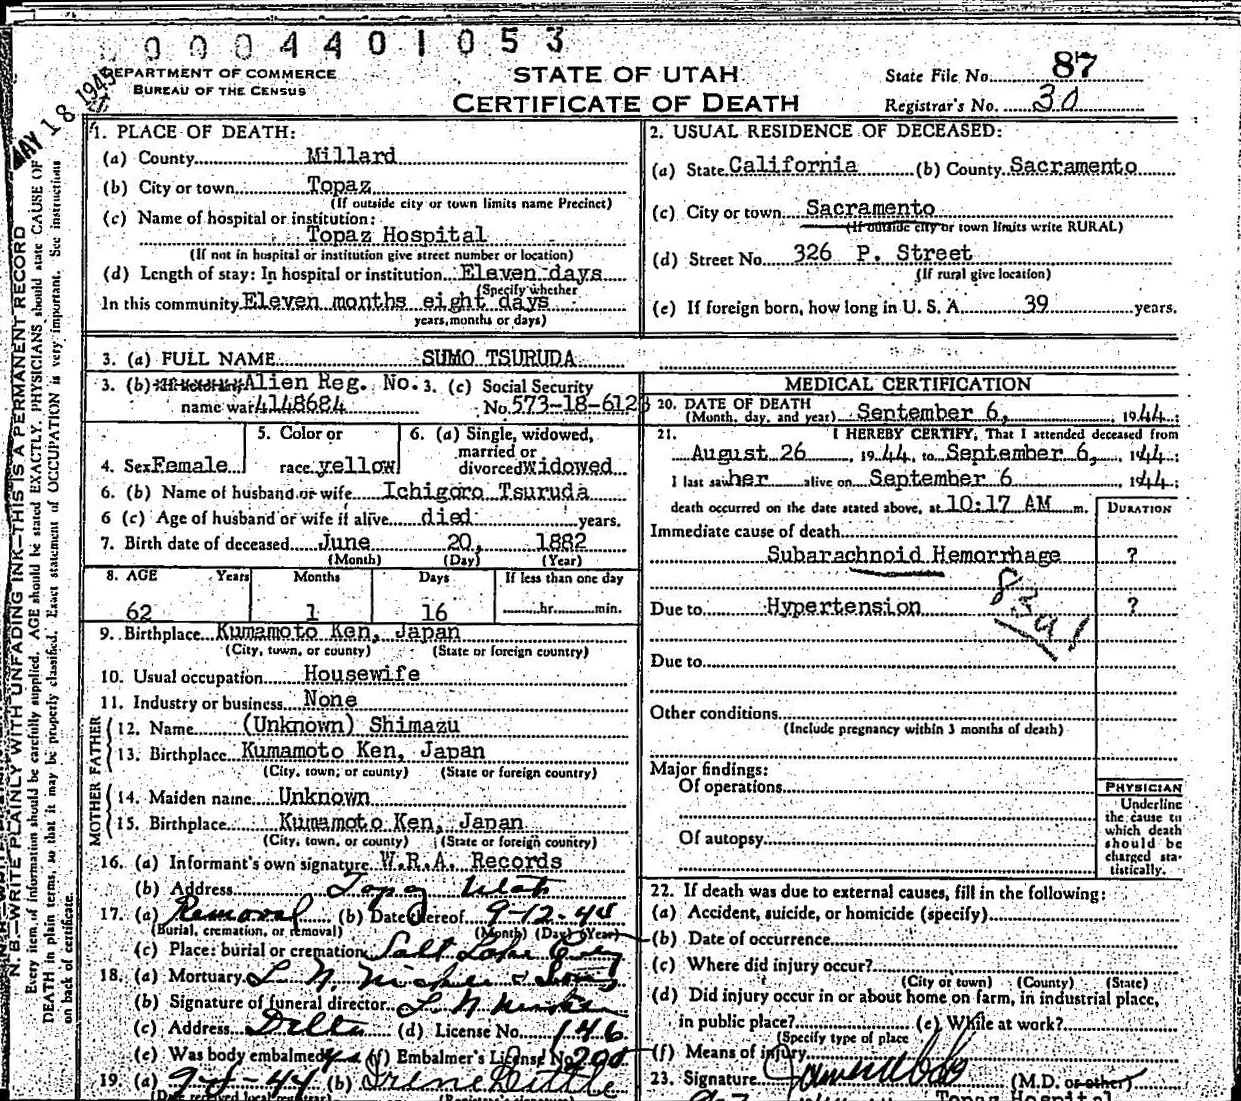 0 0 0 4 4 0 1 0 5 3
DEPARTMENT OF COMMERCE
BUREAU OF THE CENSUS
STATE OF UTAH
CERTIFICATE OF DEATH
State File No. 87
Registrar's No. 30
MAY 18 1945
N. B.—WRITE PLAINLY WITH UNFADING INK—THIS IS A PERMANENT RECORD
Every item of information should be carefully supplied. AGE should be stated EXACTLY. PHYSICIANS should state CAUSE OF
DEATH in plain terms, so that it may be properly classified. Exact statement of OCCUPATION is very important. See instructions
on back of certificate.
1. PLACE OF DEATH:
(a) County Millard
(b) City or town Topaz
(If outside city or town limits name Precinct)
(c) Name of hospital or institution:
Topaz Hospital
(If not in hospital or institution give street number or location)
(d) Length of stay: In hospital or institution Eleven days
(Specify whether
In this community Eleven months eight days
years, months or days)
2. USUAL RESIDENCE OF DECEASED:
(a) State California (b) County Sacramento
(c) City or town Sacramento
(If outside city or town limits write RURAL)
(d) Street No. 326 P. Street
(If rural give location)
(e) If foreign born, how long in U. S. A. 39 years.
3. (a) FULL NAME SUMO TSURUDA
3. (b) Alien Reg. No. 3. (c) Social Security
name war 4148684 No. 573-18-6123
4. Sex Female
5. Color or
race yellow
6. (a) Single, widowed,
married or
divorced widowed
6. (b) Name of husband or wife Ichigoro Tsuruda
6 (c) Age of husband or wife if alive died years.
7. Birth date of deceased June 20, 1882
(Month) (Day) (Year)
8. AGE Years Months Days If less than one day
62 1 16 hr. min.
9. Birthplace Kumamoto Ken, Japan
(City, town, or county) (State or foreign country)
10. Usual occupation Housewife
11. Industry or business None
FATHER
12. Name (Unknown) Shimazu
13. Birthplace Kumamoto Ken, Japan
(City, town, or county) (State or foreign country)
MOTHER
14. Maiden name Unknown
15. Birthplace Kumamoto Ken, Japan
(City, town, or county) (State or foreign country)
16. (a) Informant's own signature W.R.A. Records
(b) Address Topaz Utah
17. (a) Removal (b) Date thereof 9-12-44
(Burial, cremation, or removal) (Month) (Day) (Year)
(c) Place: burial or cremation Salt Lake City
18. (a) Mortuary L. N. & Sons
(b) Signature of funeral director L N
(c) Address Delta (d) License No. 146
(e) Was body embalmed (f) Embalmer's License No. 200
19. (a) (b) Irene
(Date received local registrar) (Registrar's signature)
MEDICAL CERTIFICATION
20. DATE OF DEATH
(Month, day, and year) September 6, 1944;
21. I HEREBY CERTIFY, That I attended deceased from
August 26, 1944, to September 6, 1944;
I last saw her alive on September 6 1944;
death occurred on the date stated above, at 10:17 AM m.
DURATION
Immediate cause of death
Subarachnoid Hemorrhage ?
Due to Hypertension ?
Due to
Other conditions
(Include pregnancy within 3 months of death)
Major findings:
Of operations
Of autopsy
PHYSICIAN
Underline
the cause to
which death
should be
charged sta-
tistically.
22. If death was due to external causes, fill in the following:
(a) Accident, suicide, or homicide (specify)
(b) Date of occurrence
(c) Where did injury occur?
(City or town) (County) (State)
(d) Did injury occur in or about home on farm, in industrial place,
in public place? (e) While at work?
(Specify type of place
(f) Means of injury
23. Signature (M.D. or other)
Topaz Hospital